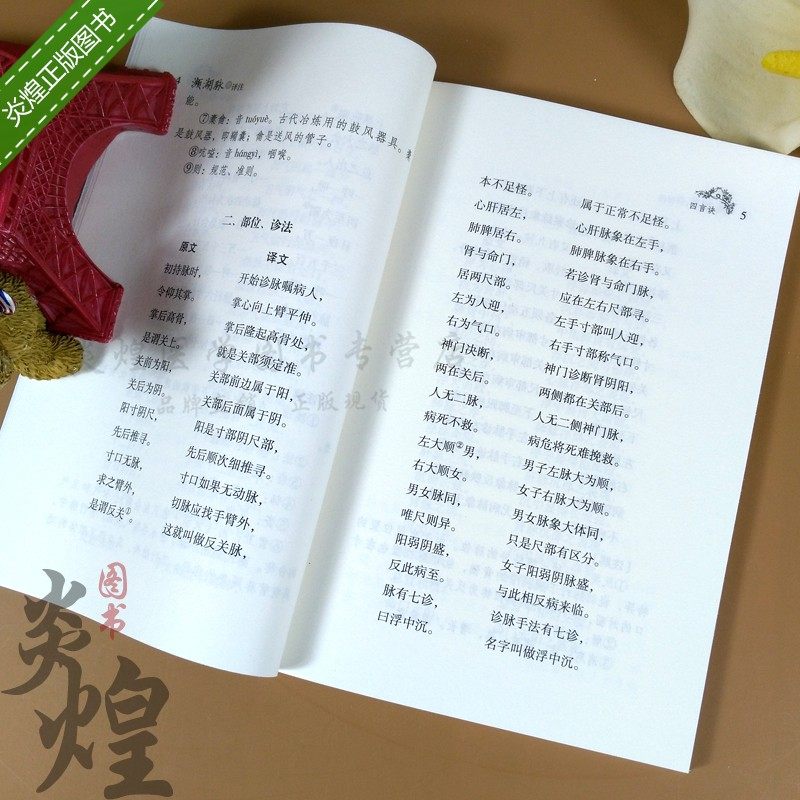 炎煌正版图书
4 濒湖脉 译注
能。
⑦橐龠：音tuóyuè。古代冶炼用的鼓风器具。橐
是鼓风器，即排橐；龠是送风的管子。
⑧吭嗌：音hángyì，咽喉。
⑨则：规范、准则。
二、部位、诊法
原文 译文
初持脉时， 开始诊脉嘱病人，
令仰其掌。 掌心向上臂平伸。
掌后高骨， 掌后隆起高骨处，
是谓关上。 就是关部须定准。
关前为阳， 关部前边属于阳，
关后为阴。 关部后面属于阴。
阳寸阴尺， 阳是寸部阴尺部，
先后推寻。 先后顺次细推寻。
寸口无脉， 寸口如果无动脉，
求之臂外， 切脉应找手臂外，
是谓反关①。 这就叫做反关脉，
四言诀 5
本不足怪。 属于正常不足怪。
心肝居左， 心肝脉象在左手，
肺脾居右。 肺脾脉象在右手。
肾与命门， 若诊肾与命门脉，
居两尺部。 应在左右尺部寻。
左为人迎， 左手寸部叫人迎，
右为气口。 右手寸部称气口。
神门决断， 神门诊断肾阴阳，
两在关后。 两侧都在关部后。
人无二脉， 人无二侧神门脉，
病死不救。 病危将死难挽救。
左大顺②男， 男子左脉大为顺，
右大顺女。 女子右脉大为顺。
男女脉同， 男女脉象大体同，
唯尺则异。 只是尺部有区分。
阳弱阴盛， 女子阳弱阴脉盛，
反此病至。 与此相反病来临。
脉有七诊， 诊脉手法有七诊，
曰浮中沉。 名字叫做浮中沉。
正版现货
炎煌
图书